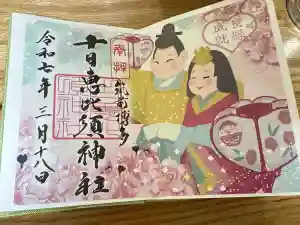 奉拝
筑前博多
十日恵比須神社
令和七年三月十八日
良縁
成就